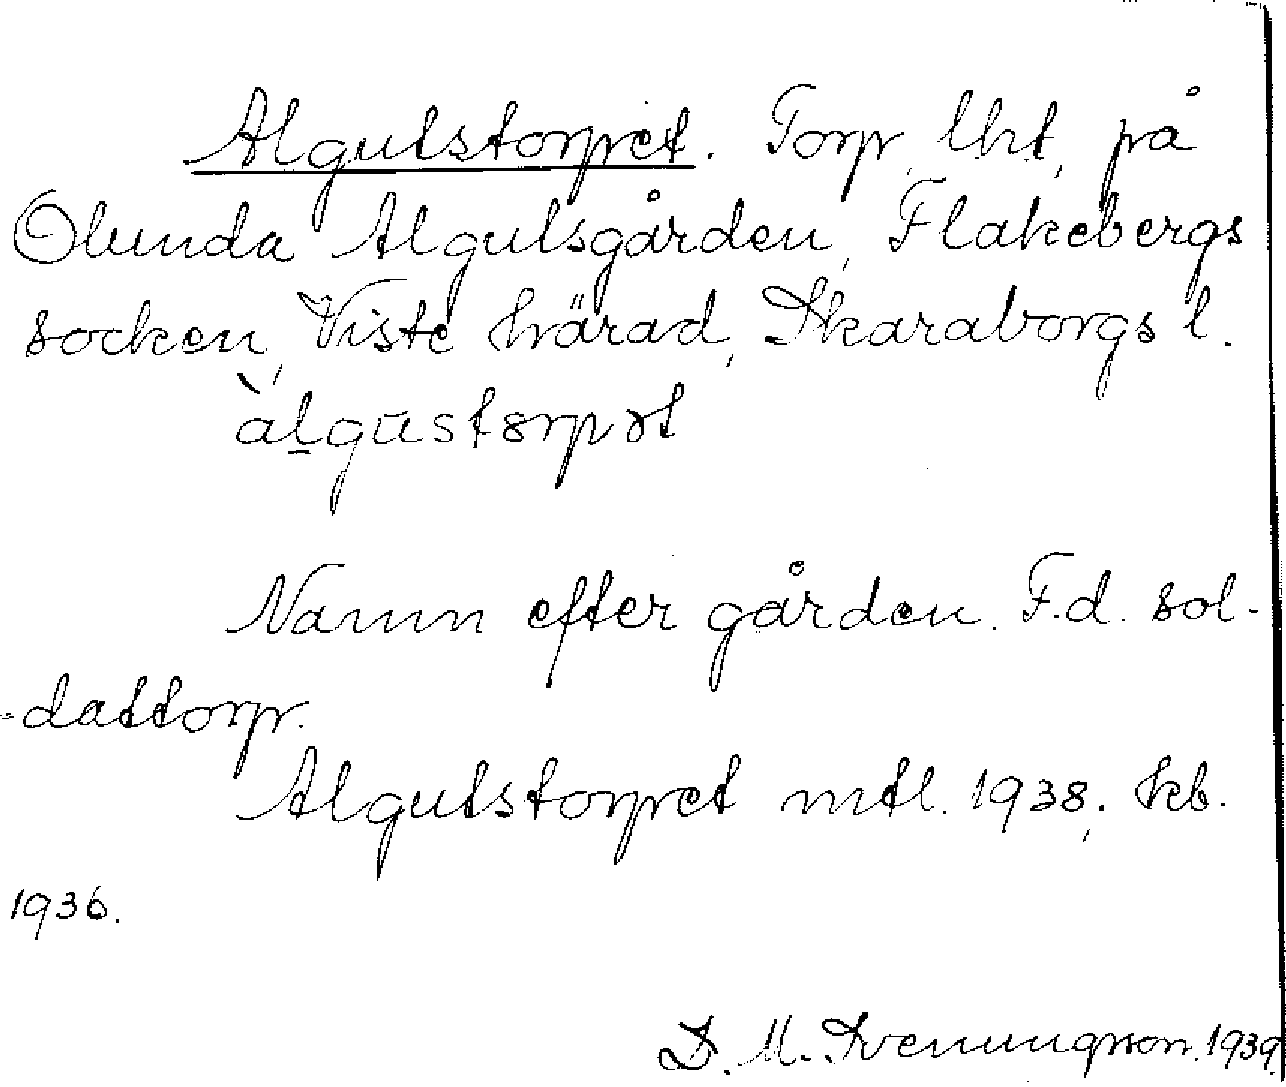 Algutstorpet. Torp, lht, på
Olunda Algutsgården, Flakebergs
socken, Viste härad, Skaraborgs l.
àlgustorpət
Namn efter gården. F.d. sol-
-dattorp.
Algutstorpet mtl. 1938; kb.
1936.
D. M. Svenungsson. 1939.